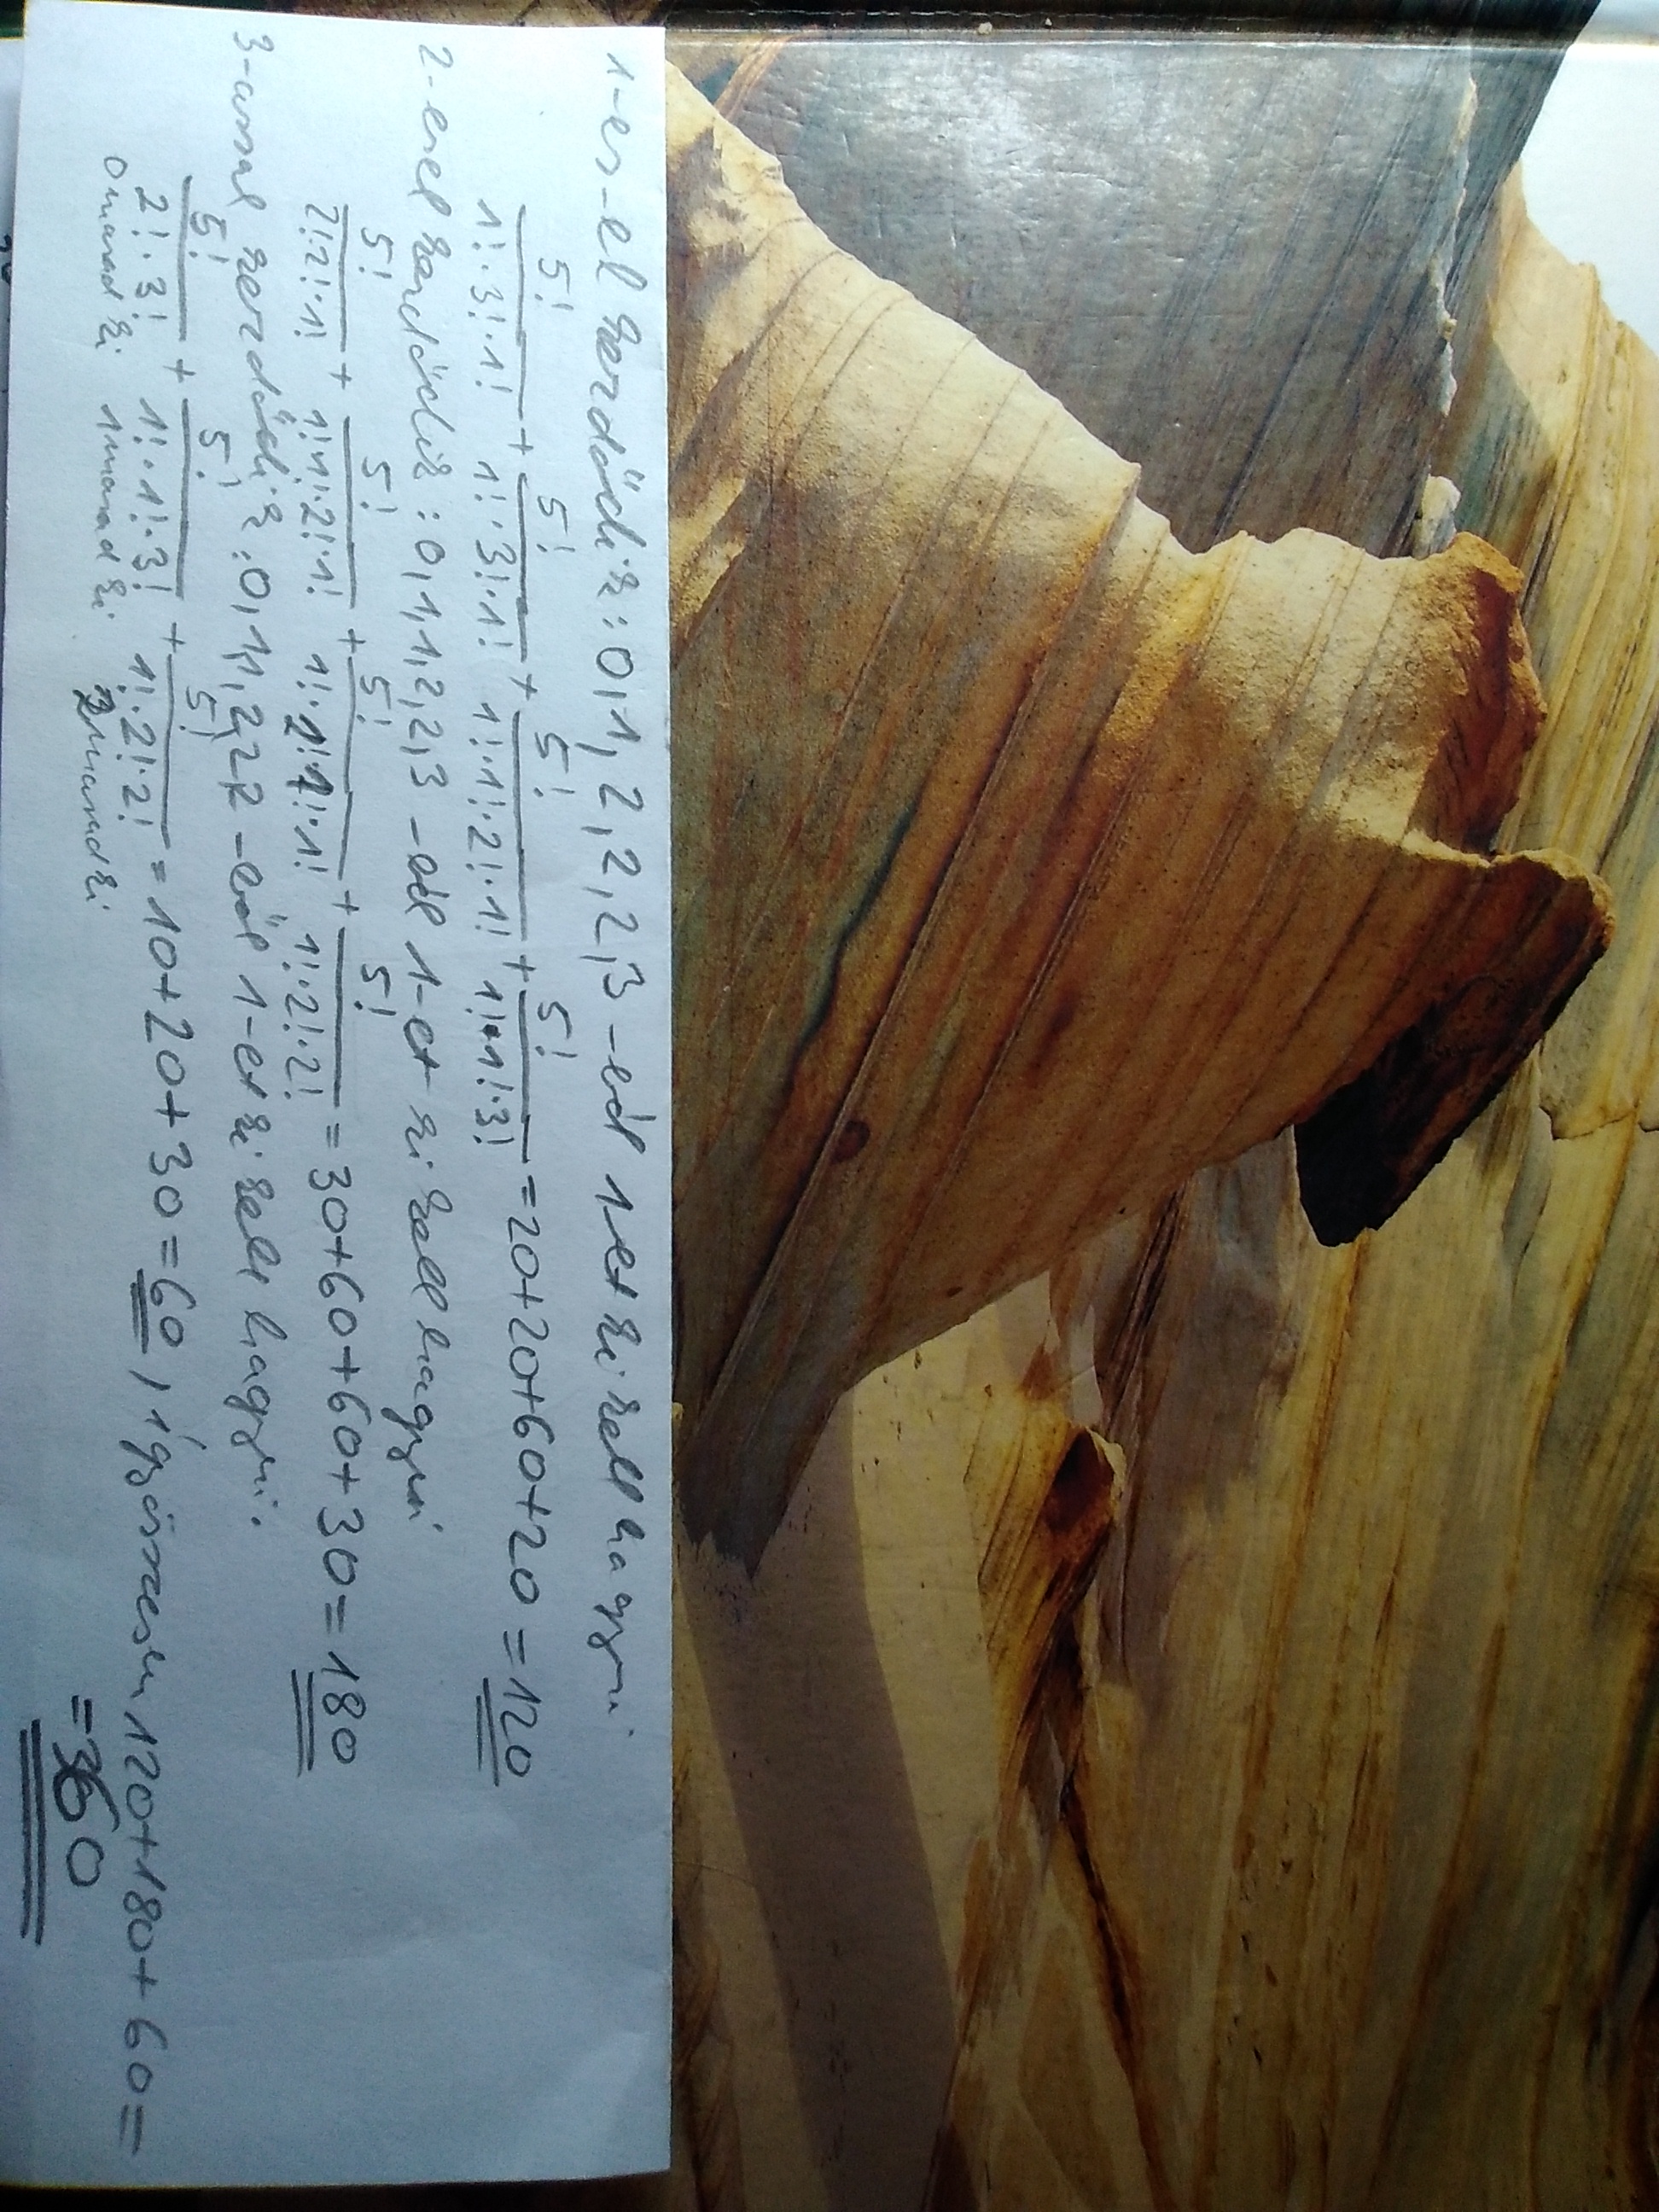 1-es-el kezdődik: 0,1,2,2,2,3-ból 1et ki kell hagyni
5!/(1!·3!·1!) + 5!/(1!·3!·1!) + 5!/(1!·1!·2!·1!) + 5!/(1!·1!·3!) = 20+20+60+20 = 120
2-esel kezdődik: 0,1,1,2,2,3-ból 1-et ki kell hagyni
5!/(2!·2!·1!) + 5!/(1!·1!·2!·1!) + 5!/(1!·2!·1!·1!) + 5!/(1!·2!·2!) = 30+60+60+30 = 180
3-assal kezdődik: 0,1,1,2,2,2-ből 1-et ki kell hagyni.
5!/(2!·3!) + 5!/(1!·1!·3!) + 5!/(1!·2!·2!) = 10+20+30 = 60, így összesen 120+180+60 =
0 marad ki 1 marad ki 2 marad ki
= 360